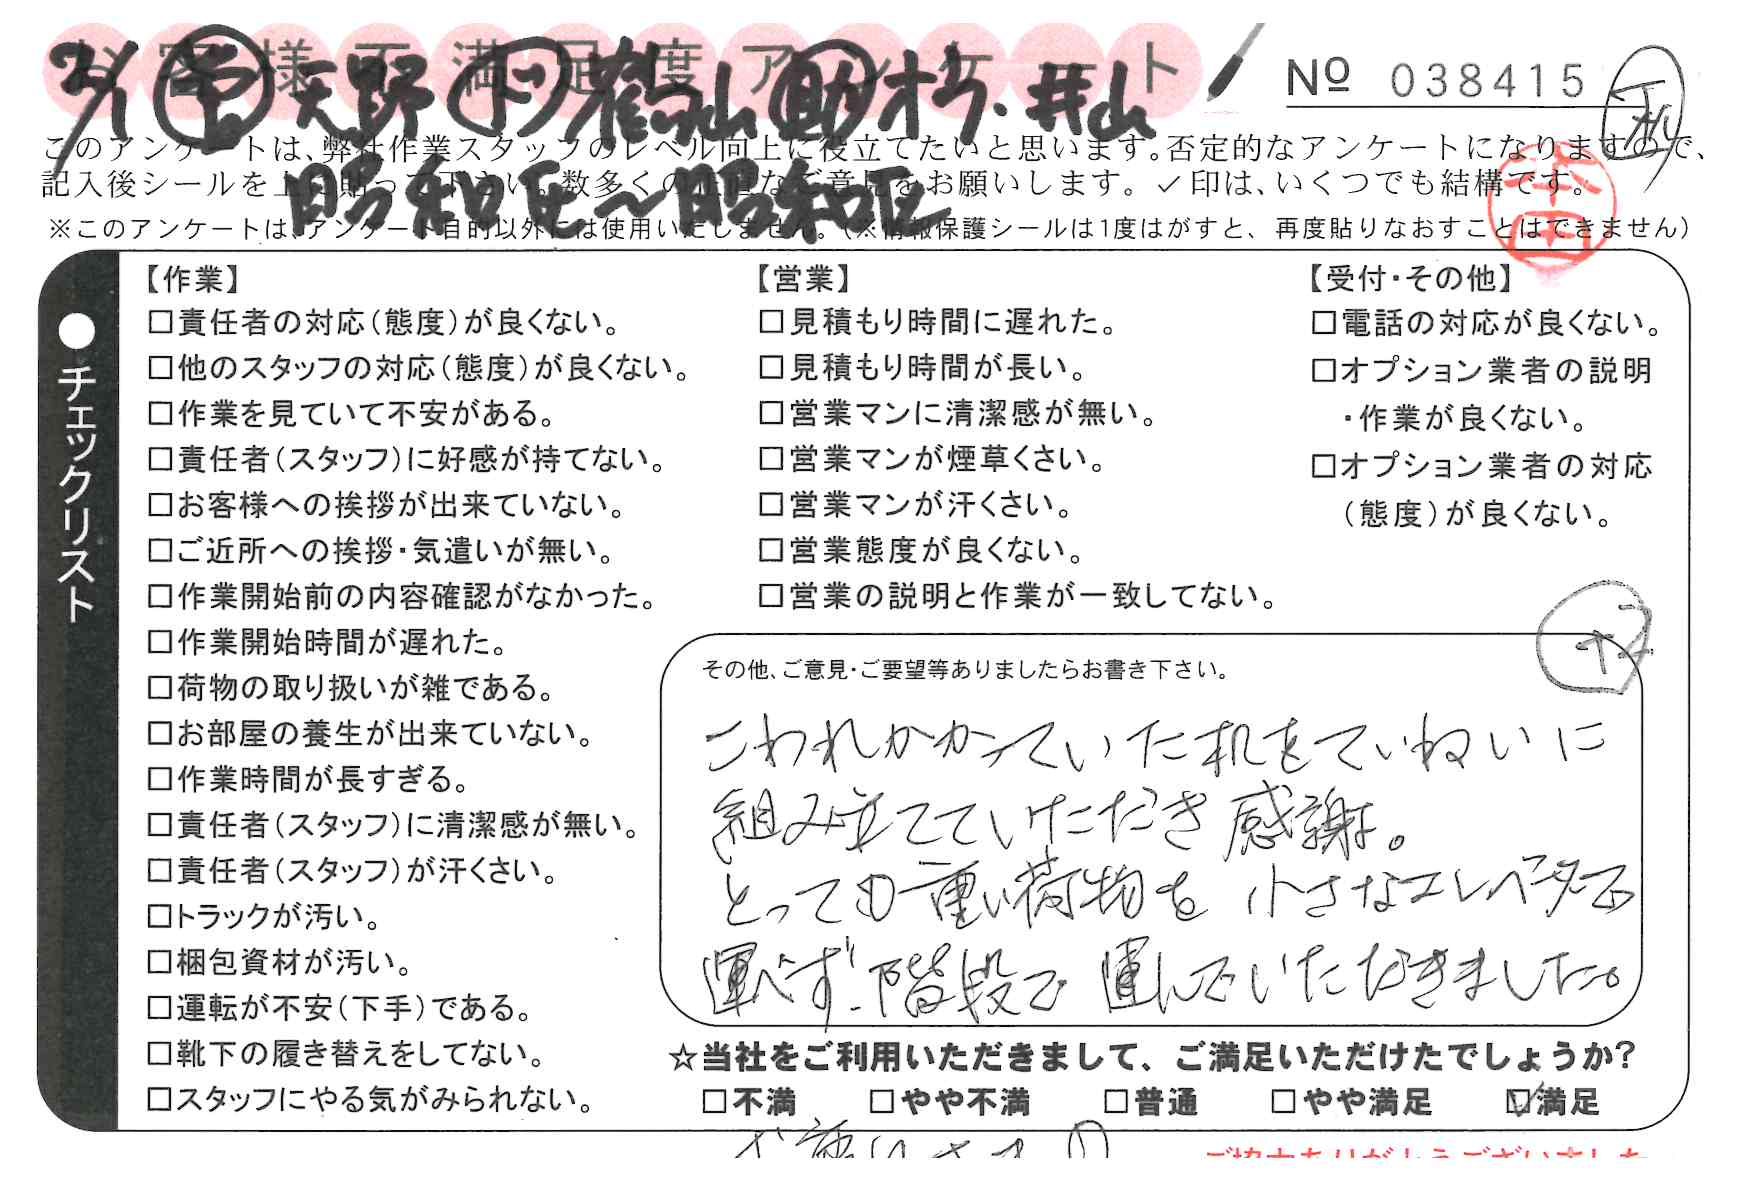 お客様不満足度アンケート
Nº 038415
2/1 矢野 鶴山 助 オク・井山
昭和区〜昭和区
このアンケートは、弊社作業スタッフのレベル向上に役立てたいと思います。否定的なアンケートになりますので、
記入後シールを上に貼って下さい。数多くの正直なご意見をお願いします。✓印は、いくつでも結構です。
※このアンケートは、アンケート目的以外には使用いたしません。(※情報保護シールは1度はがすと、再度貼りなおすことはできません)
本田
●チェックリスト
【作業】
□責任者の対応(態度)が良くない。
□他のスタッフの対応(態度)が良くない。
□作業を見ていて不安がある。
□責任者(スタッフ)に好感が持てない。
□お客様への挨拶が出来ていない。
□ご近所への挨拶・気遣いが無い。
□作業開始前の内容確認がなかった。
□作業開始時間が遅れた。
□荷物の取り扱いが雑である。
□お部屋の養生が出来ていない。
□作業時間が長すぎる。
□責任者(スタッフ)に清潔感が無い。
□責任者(スタッフ)が汗くさい。
□トラックが汚い。
□梱包資材が汚い。
□運転が不安(下手)である。
□靴下の履き替えをしてない。
□スタッフにやる気がみられない。
【営業】
□見積もり時間に遅れた。
□見積もり時間が長い。
□営業マンに清潔感が無い。
□営業マンが煙草くさい。
□営業マンが汗くさい。
□営業態度が良くない。
□営業の説明と作業が一致してない。
【受付・その他】
□電話の対応が良くない。
□オプション業者の説明
・作業が良くない。
□オプション業者の対応
(態度)が良くない。
その他、ご意見・ご要望等ありましたらお書き下さい。
こわれかかっていた机をていねいに
組み立てていただき感謝。
とっても重い荷物を小さなエレベーターで
運べず、階段で運んでいただきました。
☆当社をご利用いただきまして、ご満足いただけたでしょうか?
□不満 □やや不満 □普通 □やや満足 ☑満足
ご協力ありがとうございました